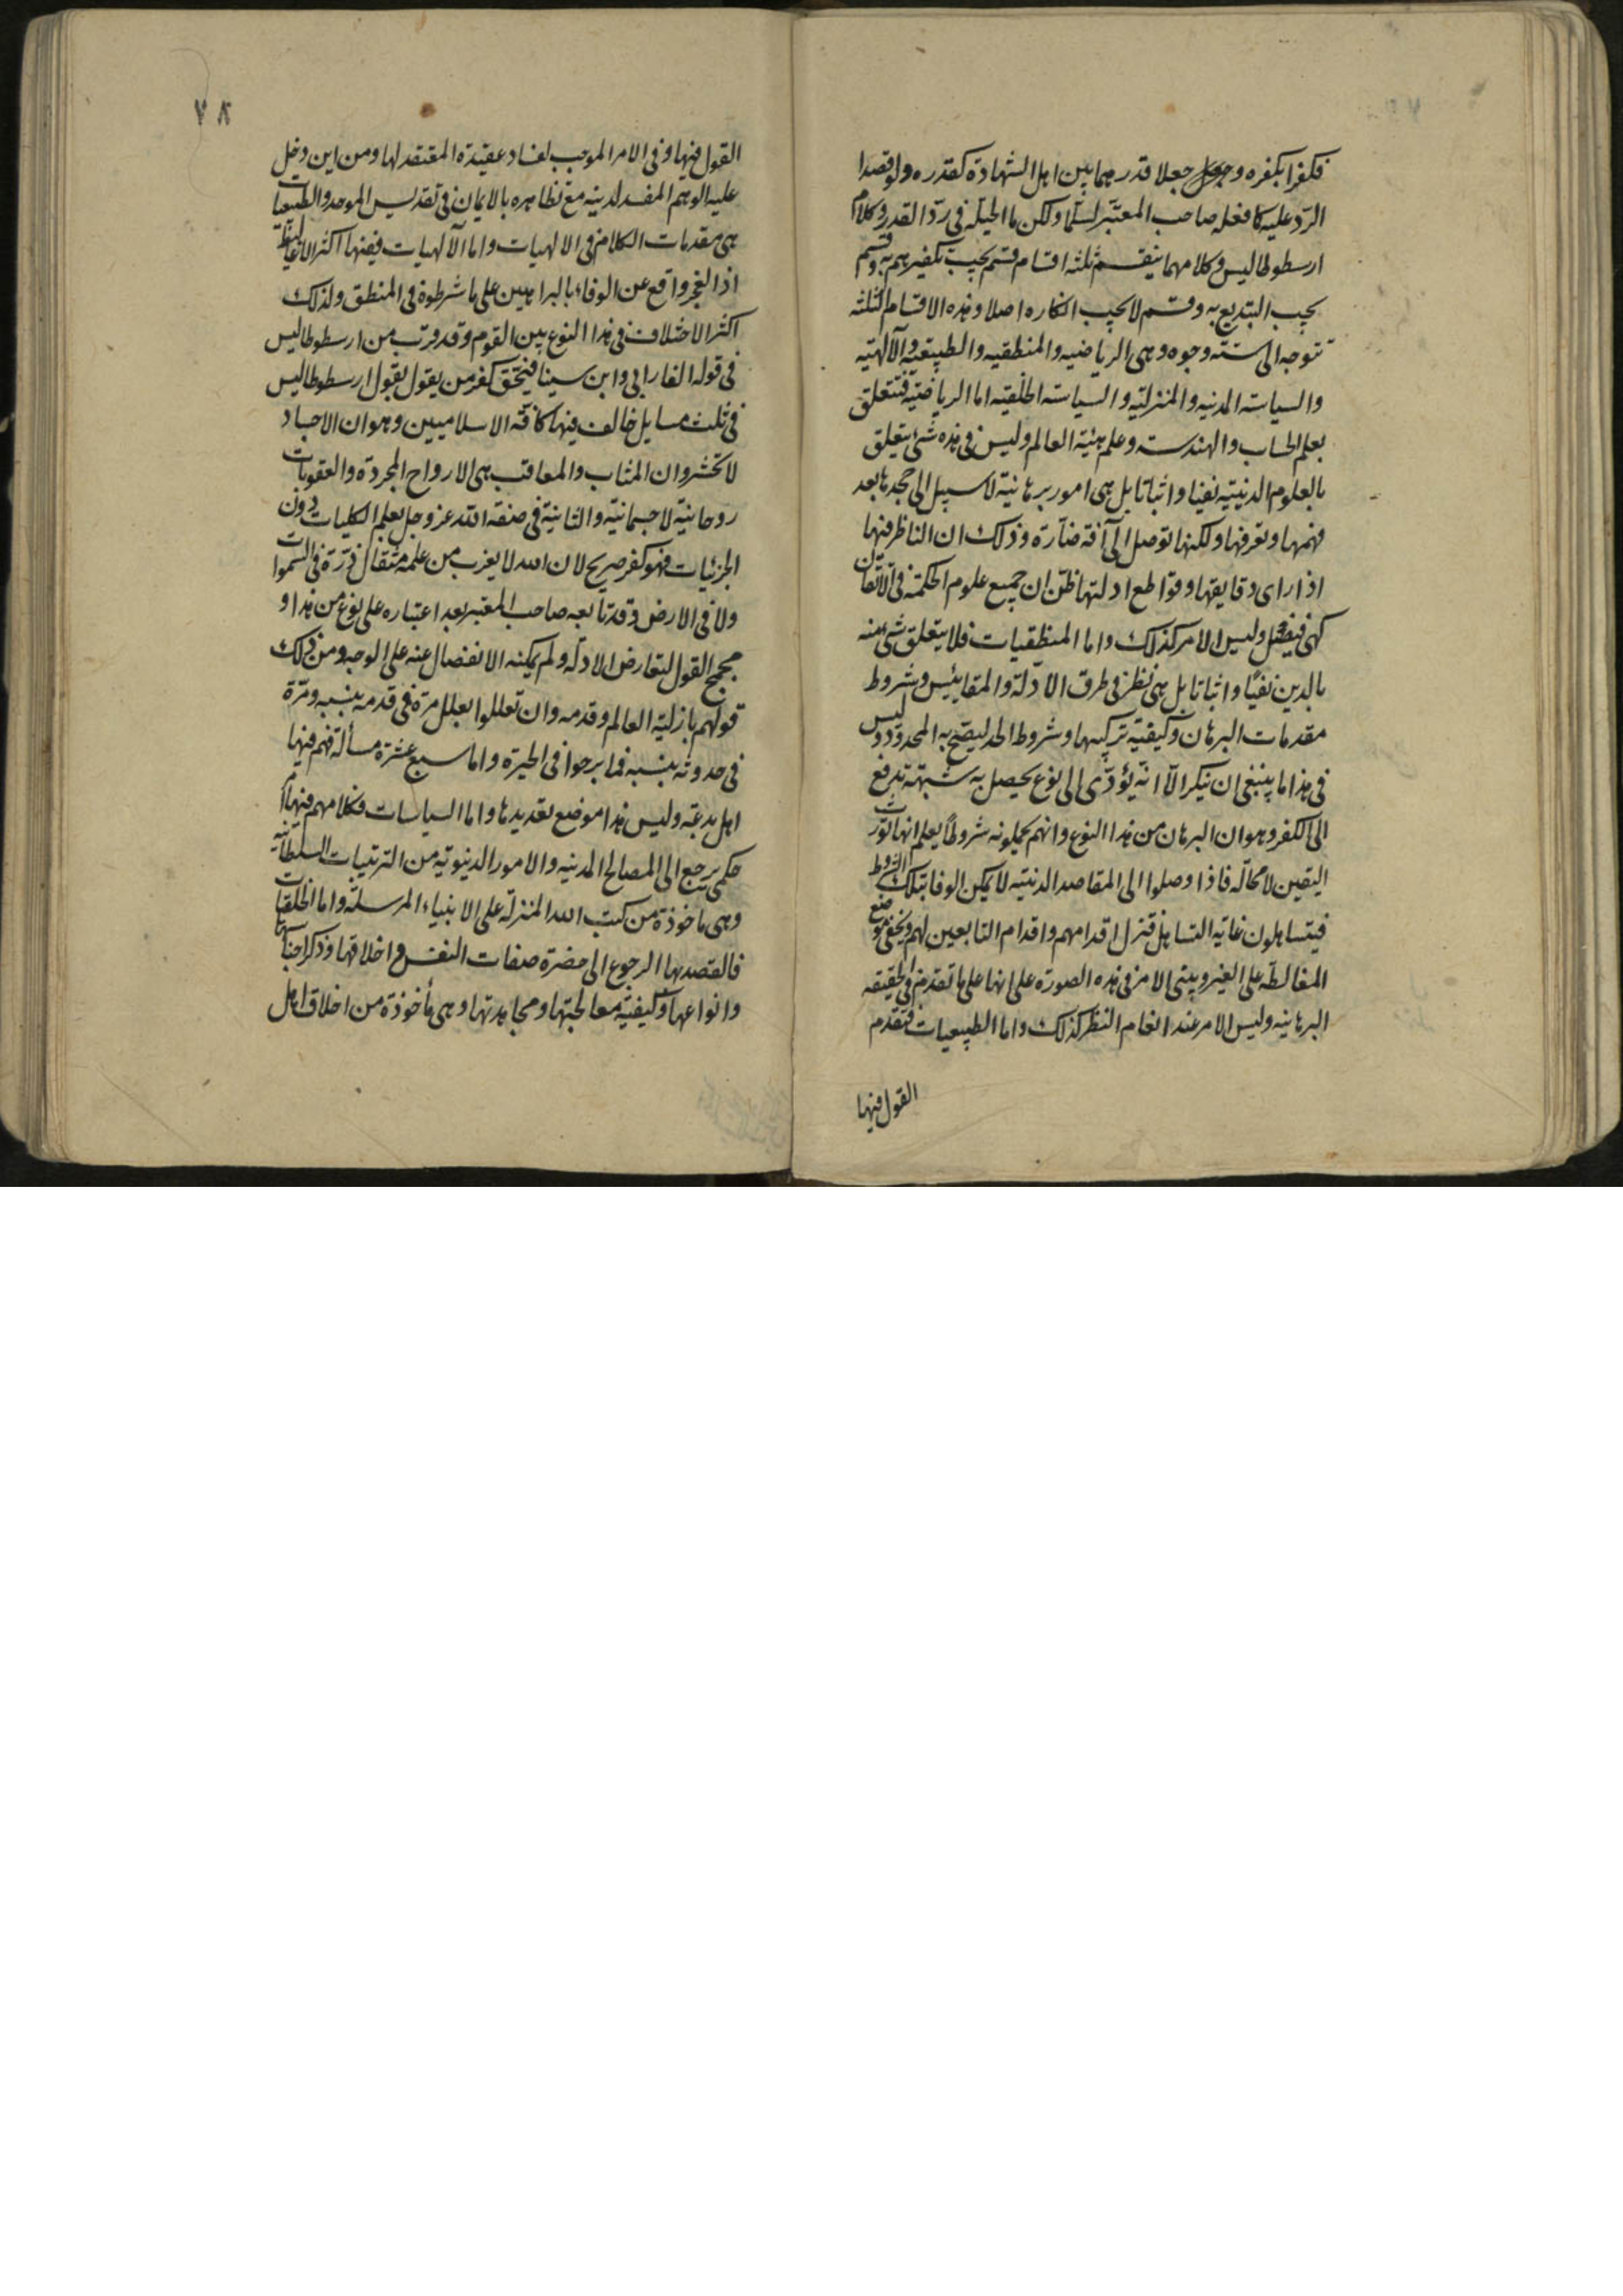 فكفرا بكفره وجعلا قدرهما بين اهل الشهادة كقدره ولو قصدا
الرد عليه كما فعله صاحب المعتبر لسلما ولكن ما الحيلة فى رد القدر وكلام
ارسطوطاليس وكلامهما ينقسم ثلثه اقسام قسم يجب تكفيرهم به وقسم
يجب التبديع به وقسم لا يجب انكاره اصلا وهذه الاقسام الثلثه
تتوجه الى ستته وجوه وهى الرياضيه والمنطقيه والطبيعيه والآلهيه
والسياسة المدنيه والمنزليه والسياسته الخلقيه اما الرياضيه فتتعلق
بعلم الحساب والهندسته وعلم هيئة العالم وليس فى هذه شئ يتعلق
بالعلوم الدينيه نفيا واثباتا بل هى امور برهانية لا سبيل الى جحدها بعد
فهمها وتعرفها ولكنها توصل الى آفة ضارة وذلك ان الناظر فيها
اذا راى دقايقها وقواطع ادلتها ظن ان جميع علوم الحكمة فى الاتقان
كهى فيضل وليس الامر كذلك واما المنطقيات فلا يتعلق شئ منه
بالدين نفيا واثباتا بل هى نظر فى طرق الادلة والمقاييس وشروط
مقدمات البرهان وكيفية تركيبها وشروط الحد ليصح به المحدود وليس
فى هذا ما ينبغى ان ينكر الا انه يؤدى الى نوع يحصل به شبهة تدفع
الى الكفر وهو ان البرهان من هذا النوع وانهم يجعلونه شروطا يعلم انها تورث
اليقين لا محالة فاذا وصلوا الى المقاصد الدينيه لا يمكن الوفا بتلك الشروط
فيتساهلون غاية التساهل فتزل اقدامهم واقدام التابعين لهم ويخفى موضع
المغالطة على الغير ويبتى الامر فى هذه الصورة على انها على ما تقدم فى الحقيقه
البرهانيه وليس الامر عند انعام النظر كذلك واما الطبيعيات فتقدم
القول فيها
٧٨
القول فيها وفى الامر الموجب لفساد عقيدة المعتقد لها ومن اين دخل
عليه الوهم المفسد لدينه مع تظاهره بالايمان فى تقديس الموحد والطبيعيات
هى مقدمات الكلام فى الالهيات واما الآلهيات ففيها اكثر الاغاليط
اذ العجز واقع عن الوفاء بالبراهين على ما شرطوه فى المنطق ولذلك
اكثر الاختلاف فى هذا النوع بين القوم وقد قرب من ارسطوطاليس
فى قوله الفارابى وابن سينا فيتحقق كفر من يقول بقول ارسطوطاليس
فى ثلث مسايل خالف فيها كافة الاسلاميين وهو ان الاجساد
لا تحشر وان المثاب والمعاقب هى الارواح المجردة والعقوبات
روحانية لا جسمانية والثانية فى صفة الله عز وجل يعلم الكليات دون
الجزئيات فهو كفر صريح لان الله لا يعزب من علمه مثقال ذرة فى السموات
ولا فى الارض وقد تابعه صاحب المعتبر بعد اعتباره على نوع من هذا و
مجمج القول لتعارض الادلة ولم يمكنه الانفصال عنه على الوجه ومن ذلك
قولهم بازلية العالم وقدمه وان تعللوا بعلل مرة فى قدمه بنسبه ومرة
فى حدوثه بنسبه فما برحوا فى الحيرة واما سبع عشرة مسألة فهم فيها
اهل بدعة وليس هذا موضع تعديدها واما السياسات فكلامهم فيها
حكمى يرجع الى المصالح المدنيه والامور الدنيوية من الترتيبات السلطانيه
وهى ماخوذة من كتب الله المنزلة على الانبياء المرسلة واما الخلقيات
فالقصد بها الرجوع الى حضرة صفات النفس واخلاقها وذكر اجناسها
وانواعها وكيفية معالجتها ومجاهدتها وهى مأخوذة من اخلاق اهل